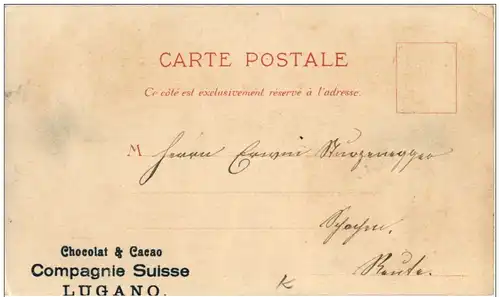 CARTE POSTALE
Ce côté est exclusivement réservé à l'adresse.
M Herrn Erwin Sturzenegger
Schachen,
Reute.
Chocolat & Cacao
Compagnie Suisse
LUGANO.
K